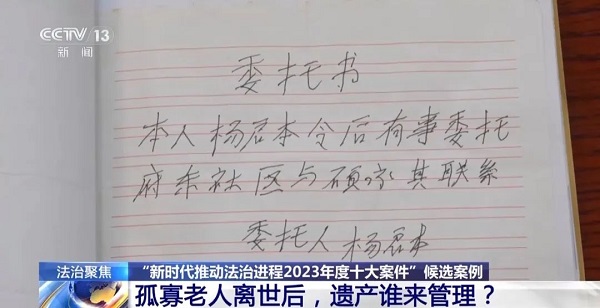 CCTV 13
新闻
委托书
本人杨启本今后有事委托
府东社区与硕冰其联系
委托人 杨启本
法治聚焦
“新时代推动法治进程2023年度十大案件”候选案例
孤寡老人离世后，遗产谁来管理？